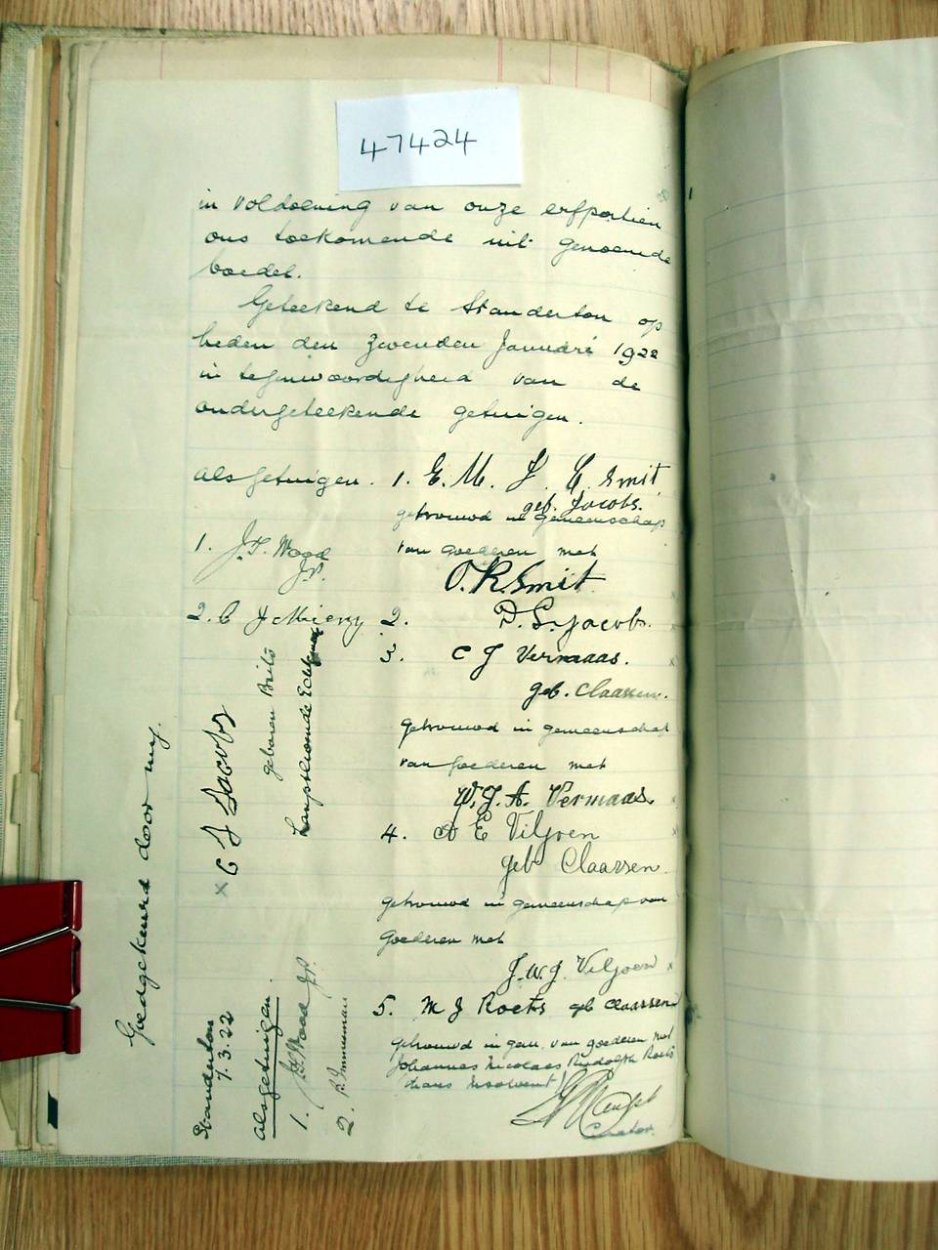 47424
in voldoening van onze erfportien
ons toekomende uit genoemde
boedel.
Geteekend te Standerton op
heden den zevenden Januari 1922
in tegenwoordigheid van de
ondergeteekende getuigen.
als getuigen. 1. E. M. S. E. Smit
geb. Jacobs.
getrouwd in gemeenschap
van goederen met
1. J. S. Wood
J.P.
O. R. Smit
2. C J Mieny 2. D. S. Jacobs.
3. C J Vermaas.
geb. Claassen.
getrouwd in gemeenschap
van goederen met
W. J. A. Vermaas.
4. A E Viljoen
geb Claassen.
getrouwd in gemeenschap van
Goederen met
J. W. J. Viljoen
5. M J Roets geb Claassen
getrouwd in gem. van goederen met
Johannes Nicolaas Rudolph Roets
thans insolvent)
Curator.
Goedgekeurd door my.
x C J Jacobs
geboren Brits
Standerton
7.3.22
Als getuigen.
1. J. S. Wood J.P.
2.